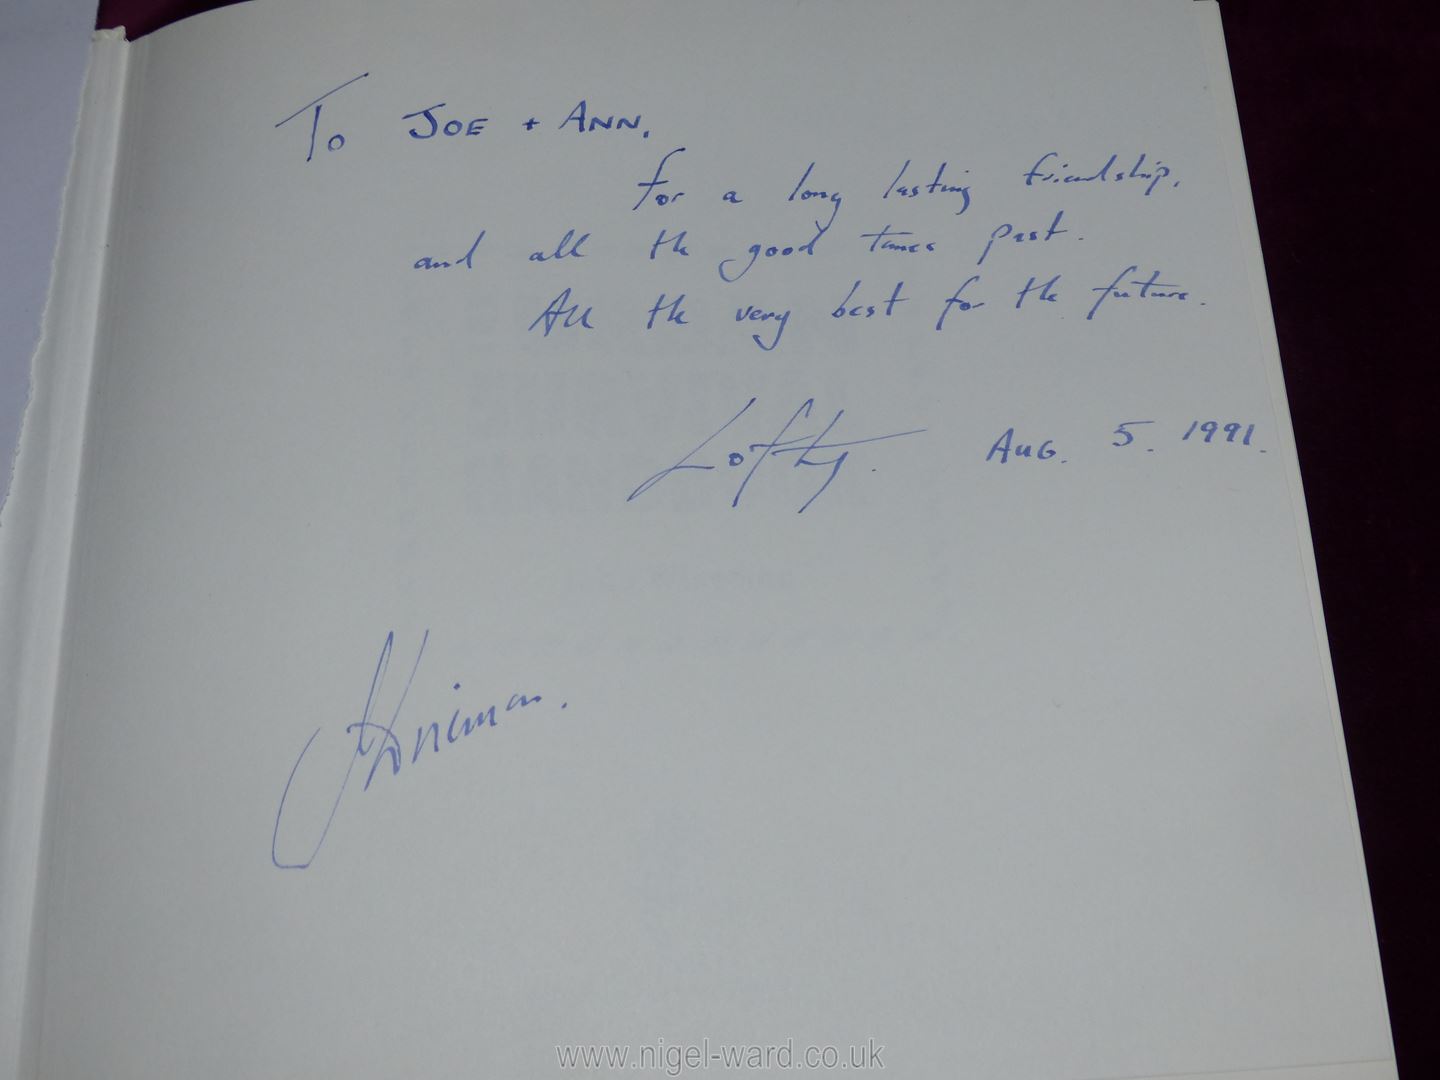 To JOE + ANN.
For a long lasting friendship,
and all the good times past.
All the very best for the future.
Lofty. AUG. 5. 1991.
www.nigel-ward.co.uk